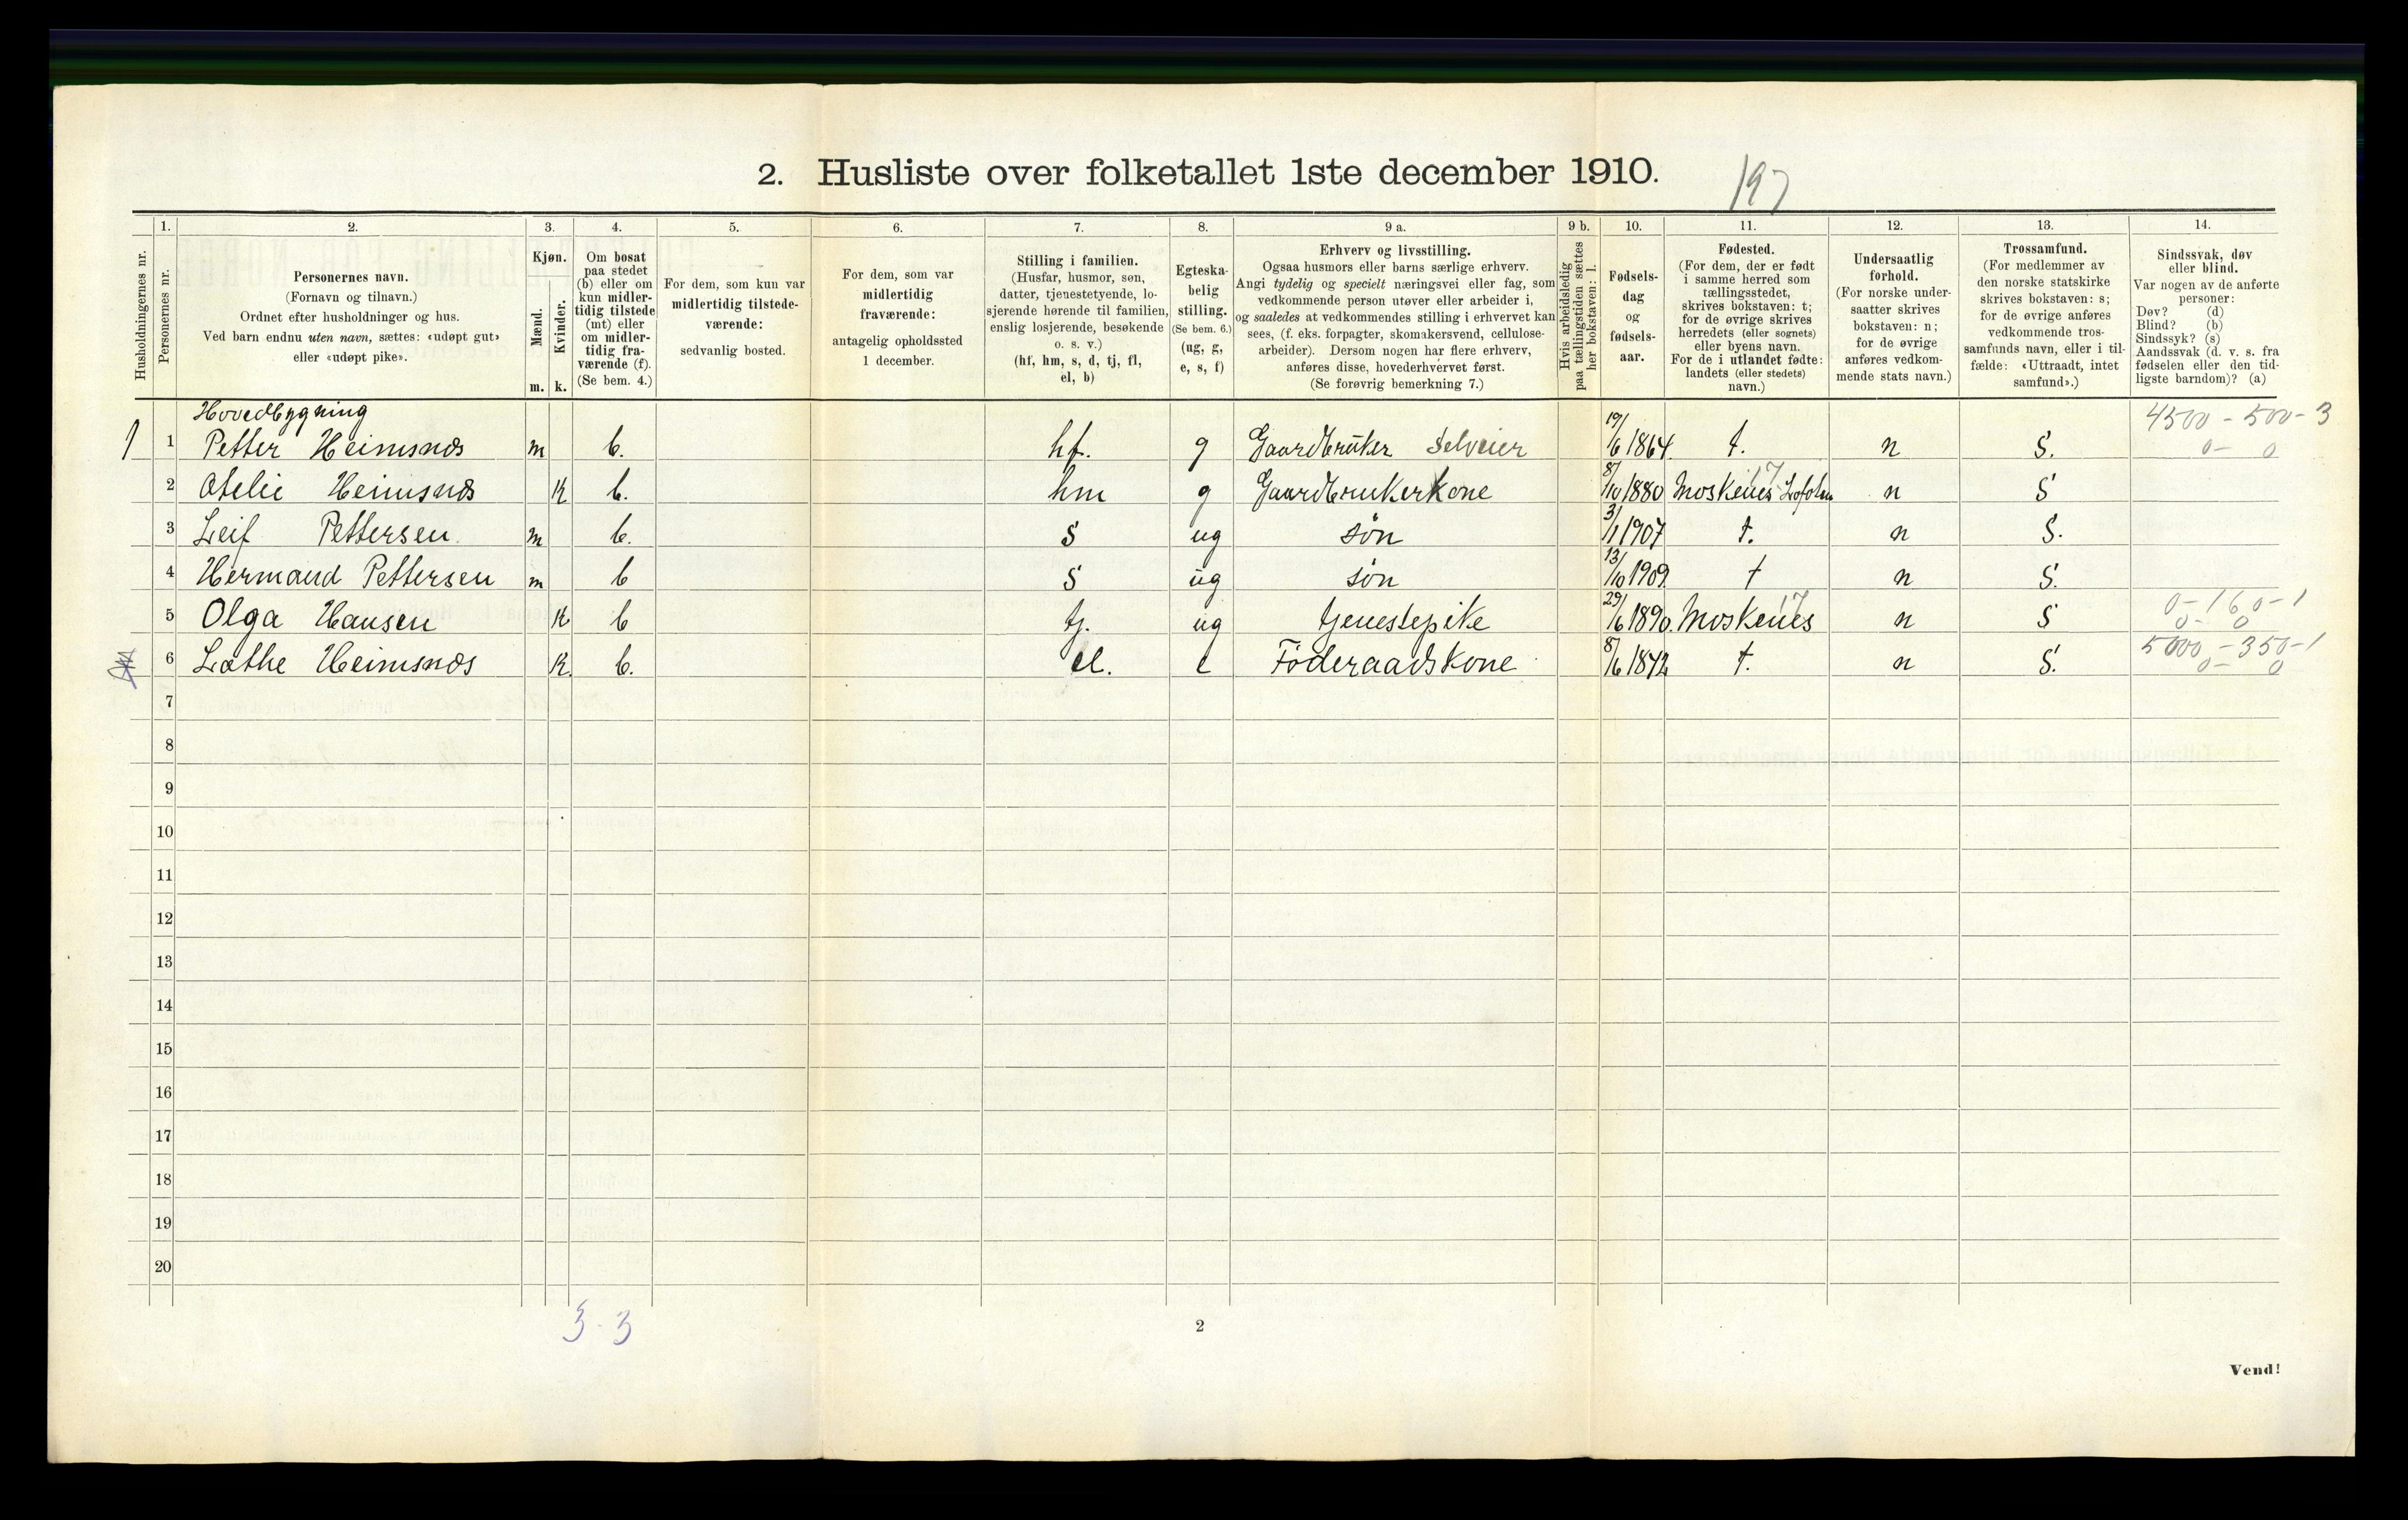 2. Husliste over folketallet 1ste december 1910.
197
Husholdningernes nr.
1.
Personernes nr.
2.
Personernes navn.
(Fornavn og tilnavn.)
Ordnet efter husholdninger og hus.
Ved barn endnu uten navn, sættes: «udøpt gut»
eller «udøpt pike».
3.
Kjøn.
Mænd.
Kvinder.
m. k.
4.
Om bosat
paa stedet
(b) eller om
kun midler-
tidig tilstede
(mt) eller
om midler-
tidig fra-
værende (f).
(Se bem. 4.)
5.
For dem, som kun var
midlertidig tilstede-
værende:
sedvanlig bosted.
6.
For dem, som var
midlertidig
fraværende:
antagelig opholdssted
1 december.
7.
Stilling i familien.
(Husfar, husmor, søn,
datter, tjenestetyende, lo-
sjerende hørende til familien,
enslig losjerende, besøkende
o. s. v.)
(hf, hm, s, d, tj, fl,
el, b)
8.
Egteska-
belig
stilling.
(Se bem. 6.)
(ug, g,
e, s, f)
9 a.
Erhverv og livsstilling.
Ogsaa husmors eller barns særlige erhverv.
Angi tydelig og specielt næringsvei eller fag, som
vedkommende person utøver eller arbeider i,
og saaledes at vedkommendes stilling i erhvervet kan
sees, (f. eks. forpagter, skomakersvend, cellulose-
arbeider). Dersom nogen har flere erhverv,
anføres disse, hovederhvervet først.
(Se forøvrig bemerkning 7.)
9 b.
Hvis arbeidsledig
paa tællingstiden sættes
her bokstaven: l.
10.
Fødsels-
dag
og
fødsels-
aar.
11.
Fødested.
(For dem, der er født
i samme herred som
tællingsstedet,
skrives bokstaven: t;
for de øvrige skrives
herredets (eller sognets)
eller byens navn.
For de i utlandet fødte:
landets (eller stedets)
navn.)
12.
Undersaatlig
forhold.
(For norske under-
saatter skrives
bokstaven: n;
for de øvrige
anføres vedkom-
mende stats navn.)
13.
Trossamfund.
(For medlemmer av
den norske statskirke
skrives bokstaven: s;
for de øvrige anføres
vedkommende tros-
samfunds navn, eller i til-
fælde: «Uttraadt, intet
samfund».)
14.
Sindssvak, døv
eller blind.
Var nogen av de anførte
personer:
Døv? (d)
Blind? (b)
Sindssyk? (s)
Aandssvak (d. v. s. fra
fødselen eller den tid-
ligste barndom)? (a)
Hovedbygning
4500 - 500 - 3
1 1 Petter Heimsnæs m b. hf. g Gaardbruker Selveier 19/6 1864. t. n S. 0 - 0
17
2 Otelie Heimsnæs K b. hm g Gaardbrukerkone 8/10 1880 Moskenes Lofoten n S
3 Leif Pettersen. m b. s ug søn 3/1 1907 t. n S.
4 Hermand Pettersen m b s ug søn 13/10 1909. t n S.
17 0 - 160 - 1
5 Olga Hansen K b tj. ug tjenestepike 29/6 1890. Moskenes n S 0 - 0
5000 - 350 - 1
6 Lathe Heimsnæs K. b. el. e Føderaadskone 8/6 1842 t. n S. 0 - 0
7
8
9
10
11
12
13
14
15
16
17
18
19
20
3 - 3
2
Vend!